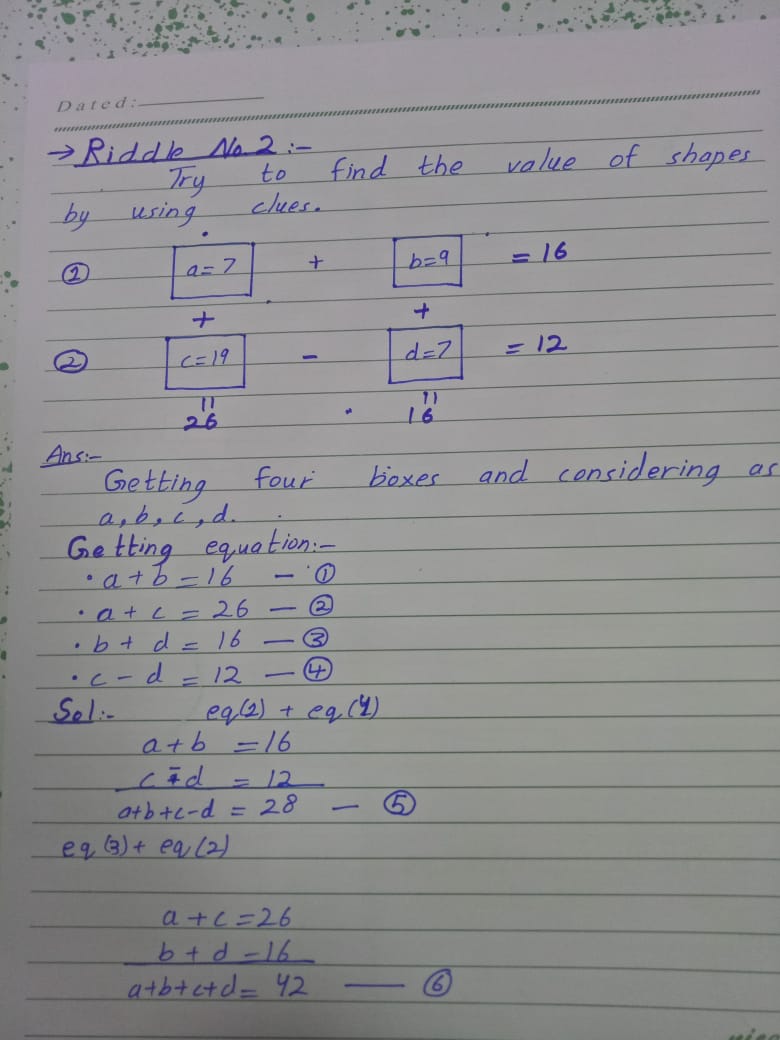 Dated:
→ Riddle No 2 :-
Try to find the value of shapes
by using clues.
① a=7 + b=9 = 16
+ +
② c=19 - d=7 = 12
|| ||
26 16
Ans:-
Getting four boxes and considering as
a, b, c, d.
Getting equation:-
• a + b = 16 — ①
• a + c = 26 — ②
• b + d = 16 — ③
• c - d = 12 — ④
Sol:- eq(2) + eq(4)
a + b = 16
c - d = 12
a+b+c-d = 28 — ⑤
eq(3) + eq(2)
a + c = 26
b + d = 16
a+b+c+d = 42 — ⑥